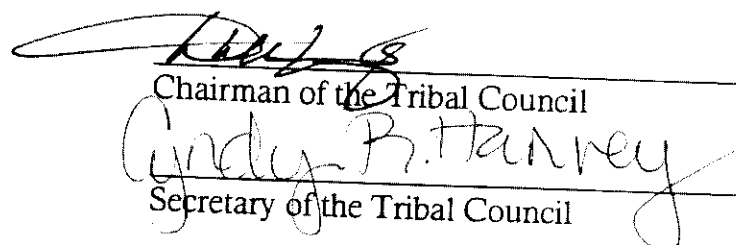 Chairman of the Tribal Council
Cyndy R. Harvey
Secretary of the Tribal Council